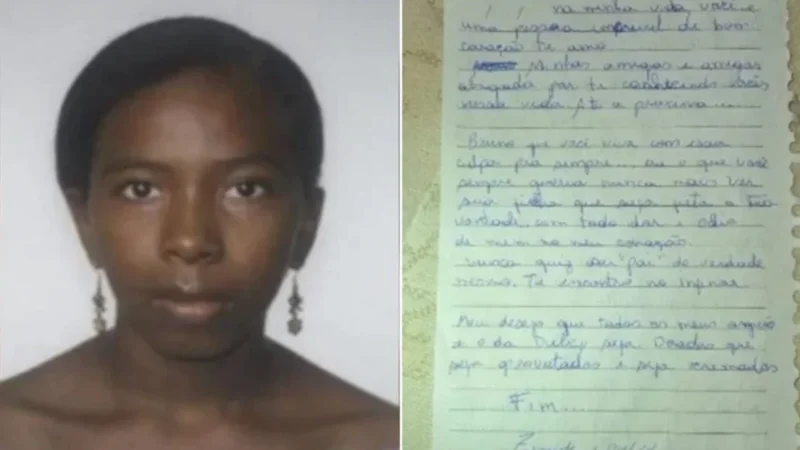 na minha vida você e
uma pessoa de bom
coração te amo
Minhas amigas e amigos
obrigada por te conhecido vocês
nessa vida Até a proxima...
Bruno que você viva com essa
culpa pra sempre... era o que você
sempre queria nunca mais ver
sua filha que seja feita a sua
vontade com toda dor e odio
do mundo no meu coração.
nunca quiz ser "pai" de verdade
mesmo. Te encontro no inferno
Meu desejo que todos os meus orgãos
e o da seja Doados que
seja e seja cremados
Fim...